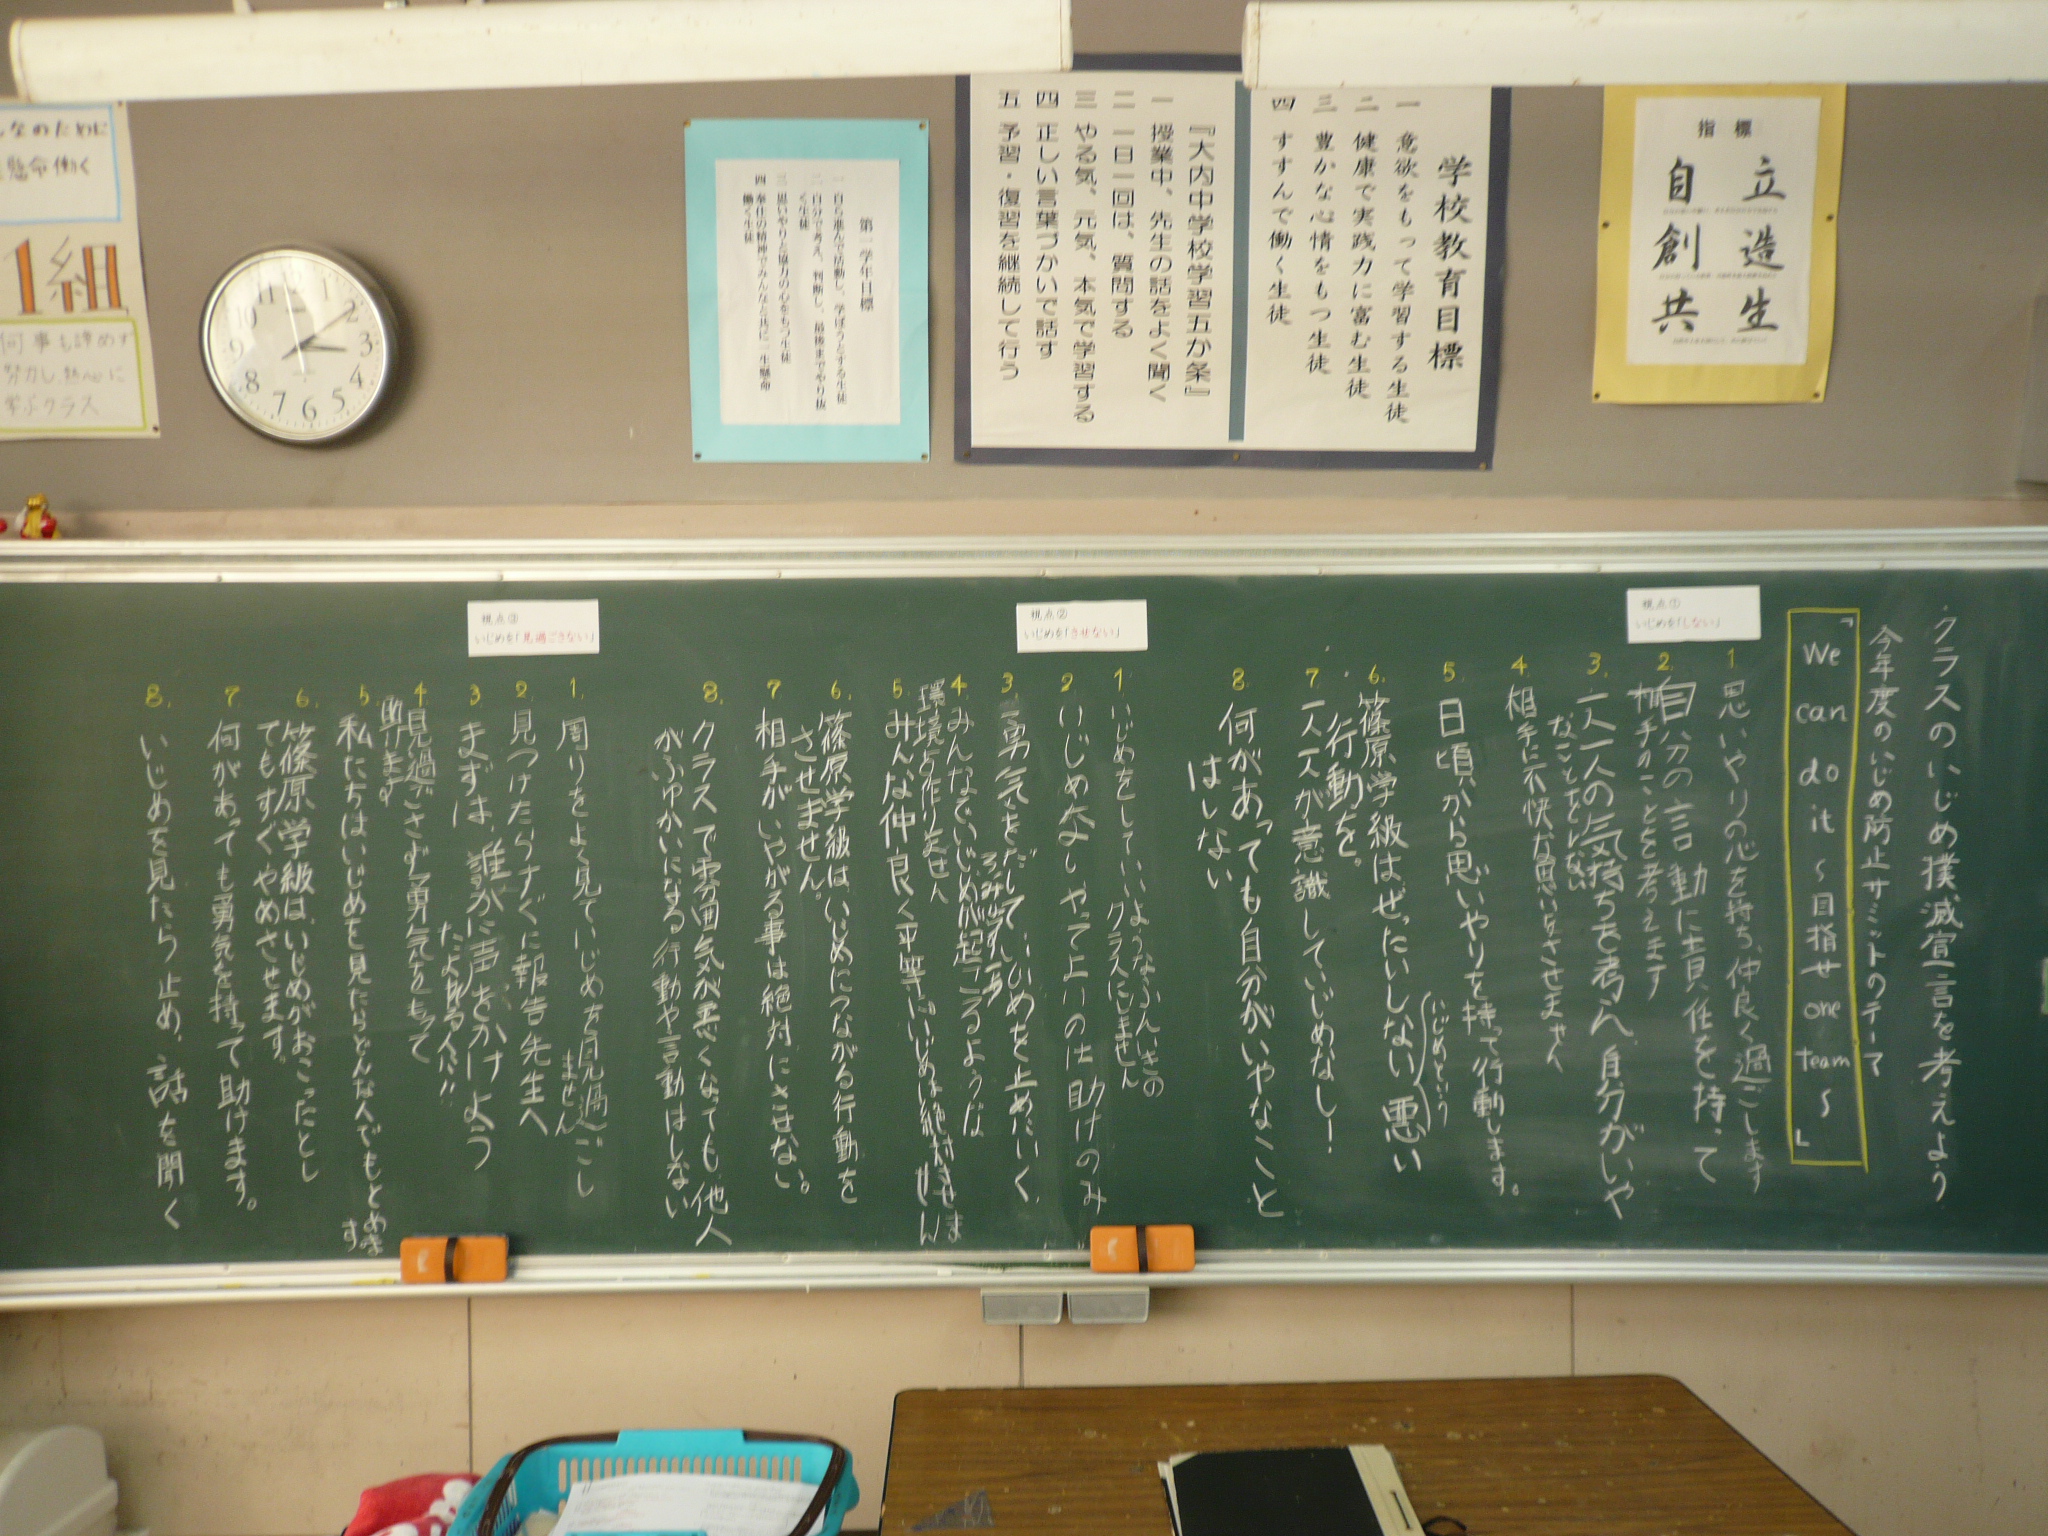 指標
自立
創造
共生
学校教育目標
一 意欲をもって学習する生徒
二 健康で実践力に富む生徒
三 豊かな心情をもつ生徒
四 すすんで働く生徒
『大内中学校学習五か条』
一 授業中、先生の話をよく聞く
二 一日一回は、質問する
三 やる気、元気、本気で学習する
四 正しい言葉づかいで話す
五 予習・復習を継続して行う
第一学年目標
一 自ら進んで活動し、学ぼうとする生徒
二 自分で考え、判断し、最後までやり抜
く生徒
三 思いやりと協力の心をもつ生徒
四 奉仕の精神でみんなと共に一生懸命
働く生徒
なのために
懸命働く
1組
何事も諦めず
努力し熱心に
学ぶクラス
11
12
10
2
9
3
8
4
7
6
5
クラスのいじめ撲滅宣言を考えよう
今年度のいじめ防止サミットのテーマ
「We can do it ～目指せ one team～」
視点①
いじめを「しない」
1. 思いやりの心を持ち、仲良く過ごします
2. 自分の言動に責任を持って
相手のことを考えます
3. 一人一人の気持ちを考え、自分がいや
なことをしない
4. 相手に不快な思いをさせません
5. 日頃から思いやりを持って行動します。
6. 篠原学級はぜったいしない(いじめという)悪い
行動を。
7. 一人一人が意識していじめなし!
8. 何があっても自分がいやなこと
はしない
視点②
いじめを「させない」
1. いじめをしていいようなふんいきの
クラスにしません
2. いじめないやって止いのは助けのみ
3. 勇気をだして、いじめを止めたいく
4. みんなでいじめが起こるような
環境を作りません
5. みんな仲良く平等に いじめは絶対させま
せん
6. 篠原学級は、いじめにつながる行動を
させません。
7. 相手がいやがる事は絶対にさせない。
8. クラスで雰囲気が悪くなっても、他人
がふゆかいになる行動や言動はしない
視点③
いじめを「見過ごさない」
1. 周りをよく見ていじめを見過ごし
ません
2. 見つけたらすぐに報告先生へ
3. まずは、誰かに声をかけよう
4. 見過ごさず勇気をもって
5. 私たちはいじめを見たらどんな人でもとめま
す
6. 篠原学級は、いじめがおこったとし
てもすぐやめさせます。
7. 何があっても勇気を持って助けます。
8. いじめを見たら止め、話を聞く